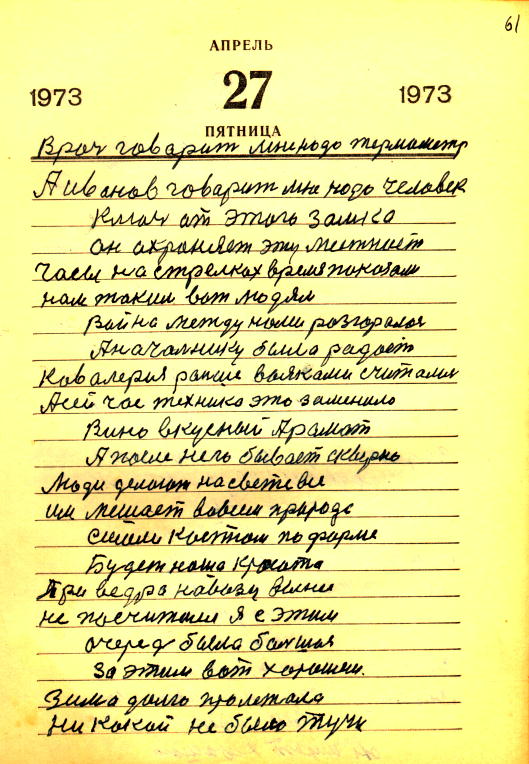 61
АПРЕЛЬ
1973 27 1973
ПЯТНИЦА
Врач говарит мне нодо термометр
А иванов говарит мне нодо человек
Ключ от этого замка
он охраняет эту местност
Часы на стрелках время покозали
нам таким вот людям
Вайна между нами розгоралас
Аначалнику была радост
Ковалерия рание вояками считалис
Асей час техника это заменило
Вино вкусный Арамат
А после него бывает скверно
Люди делают на свете все
им мешает вовсем природа
сшили костюм по форме
Будет наша красота
При ведра навозу
не посчитали я с этим
очеред была болшая
За этим вот хорошем.
Зима долго пролетала
Ни какой не было тучи